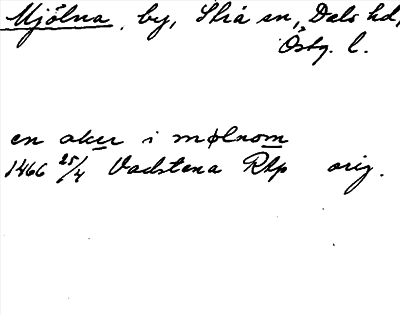 Mjölna, by, Skä sn, Dals hd,
Östg. l.
en aker i mølnom
1466 25/4 Vadstena Rkp orig.